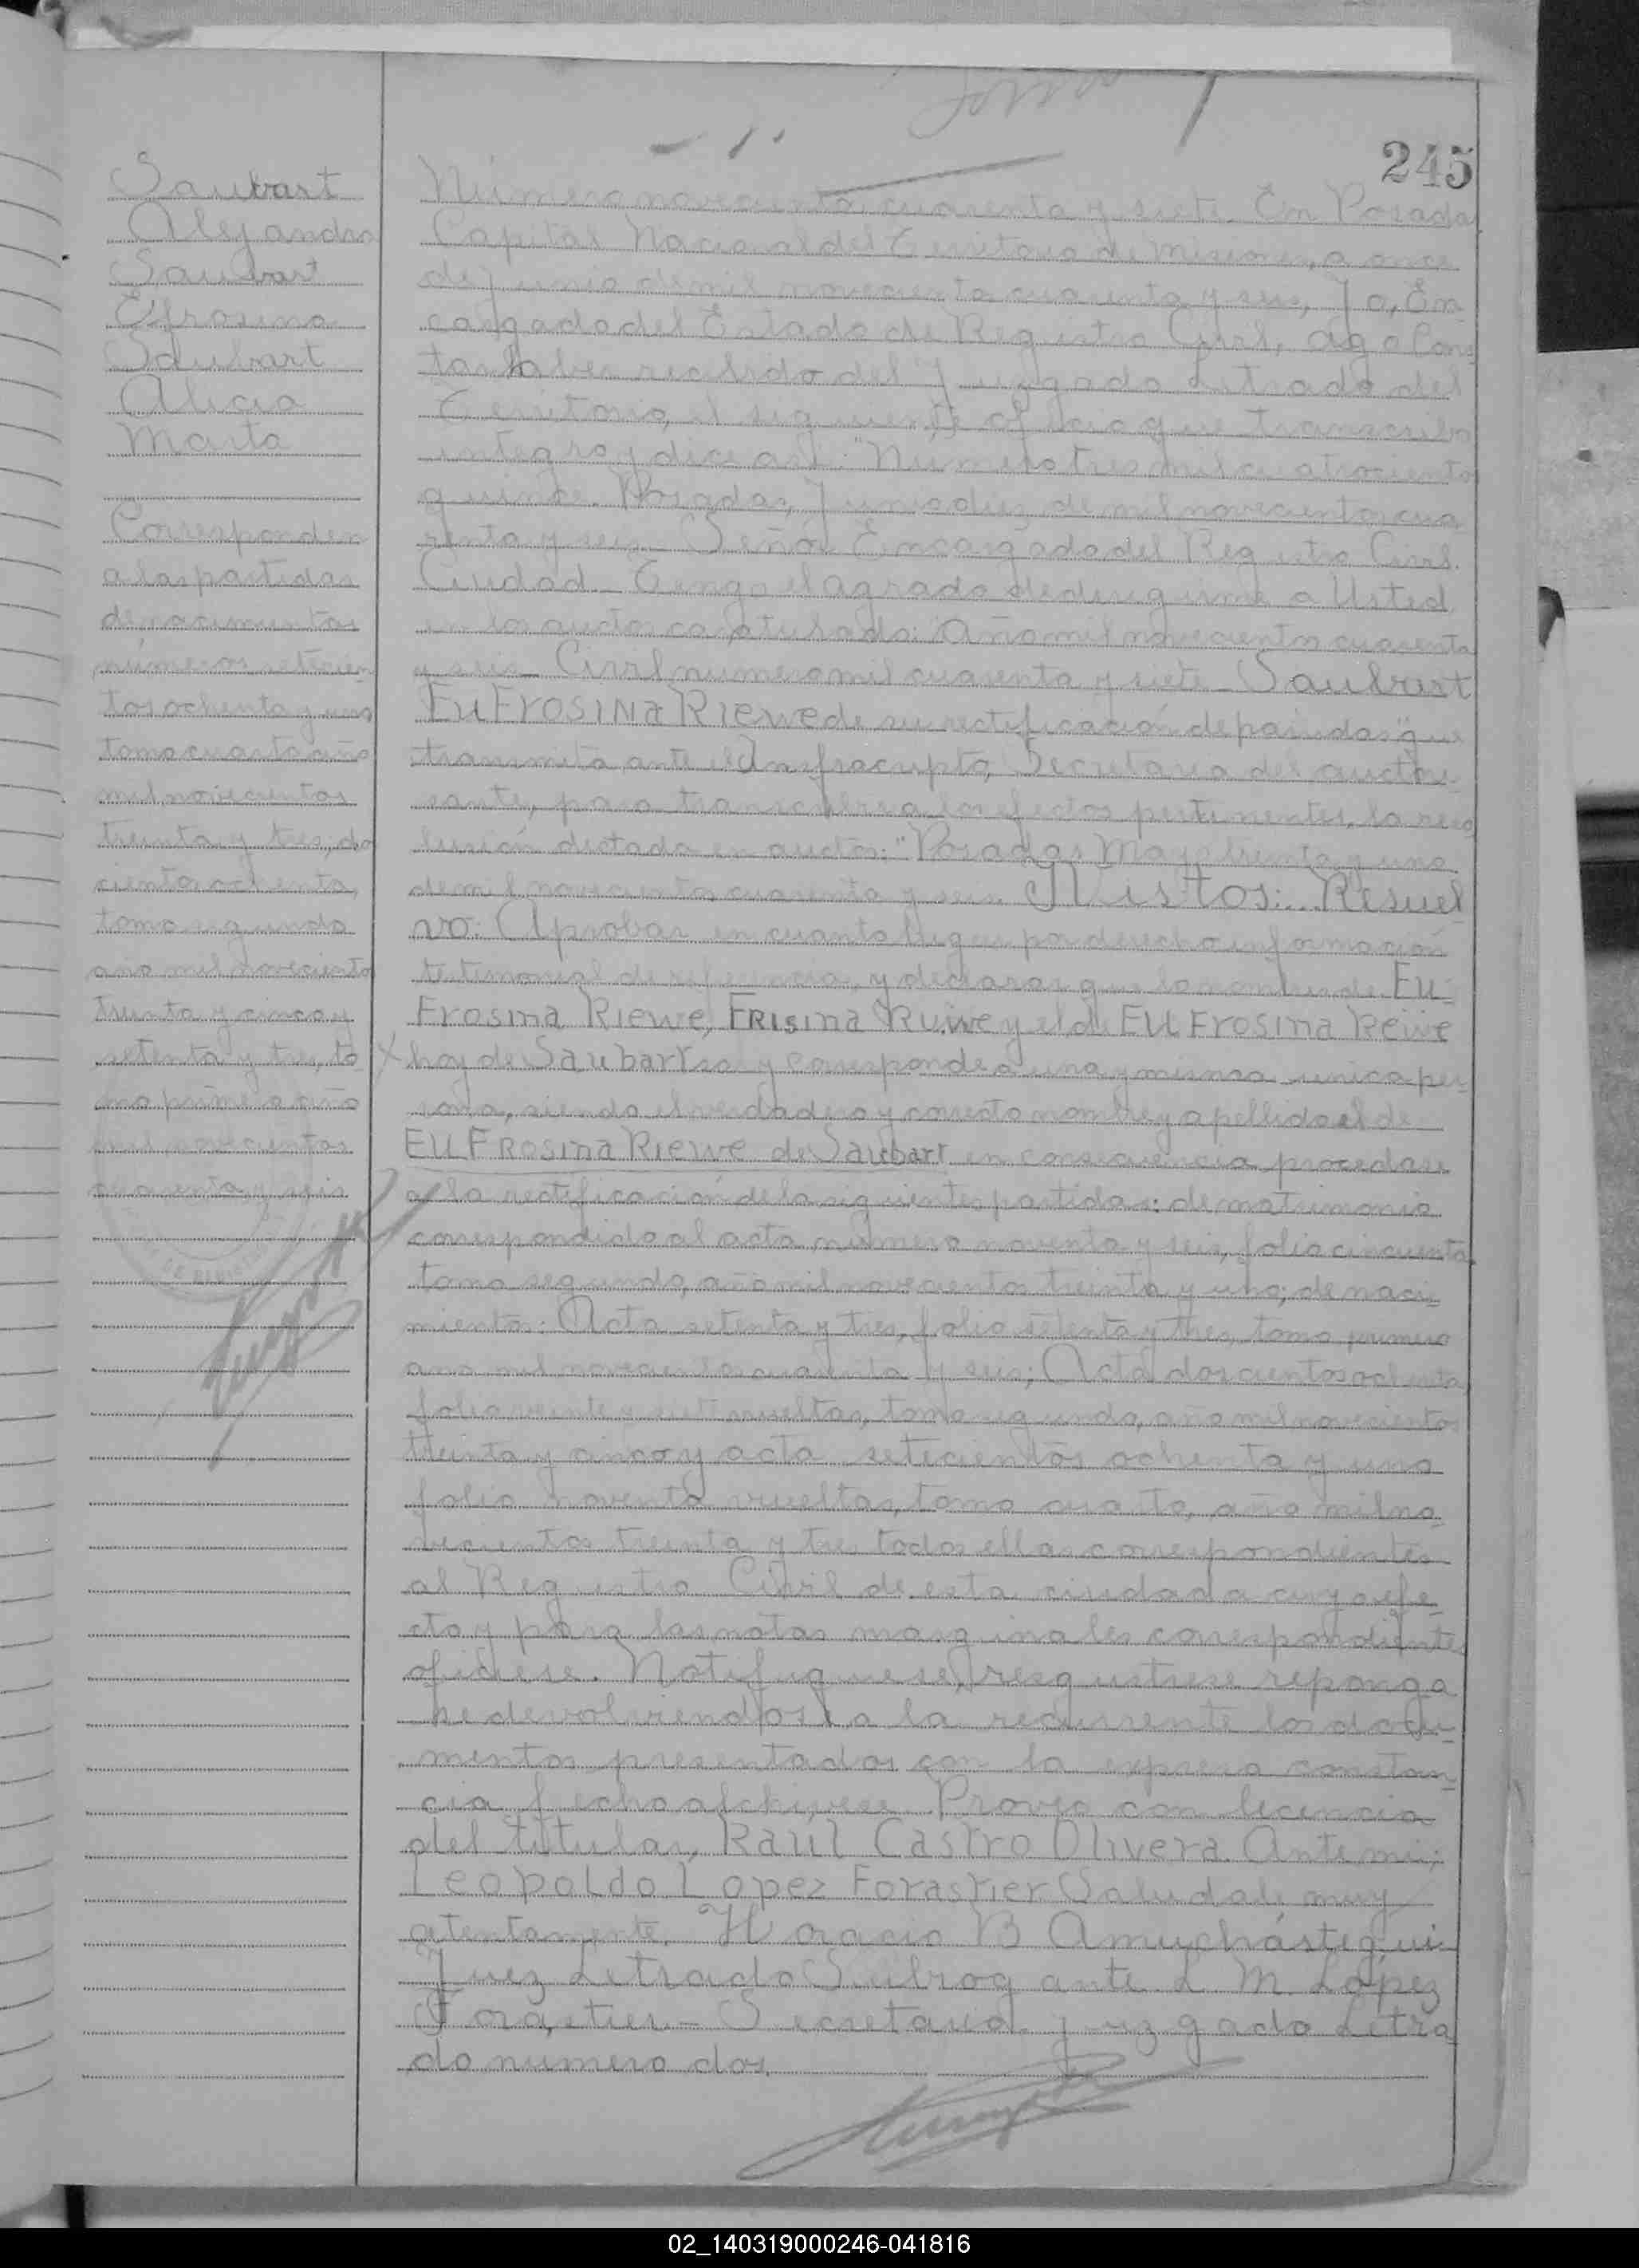 245
Saubart
Alejandro
Saubart
Efrosina
Saubart
Alicia
Marta
Corresponden
a las partidas
de nacimientos
números setecien
tos ochenta y uno
tomo cuarto año
mil novecientos
treinta y tres; dos
cientos ochenta,
tomo segundo
año mil novecientos
treinta y cinco y
setenta y tres, to
mo primero año
mil novecientos
cuarenta y seis
Número novecientos cuarenta y siete. En Posadas
Capital Nacional del Territorio de Misiones, a once
de junio de mil novecientos cuarenta y seis, Yo, En
cargado del Estado de Registro Civil, ago Cons
tar haber recibido del Juzgado Letrado del
Territorio, el siguiente oficio que transcribo
integro y dice asi: "Número tres mil cuatrocientos
quince. Posadas, Junio diez de mil novecientos cua
renta y seis. Señor Encargado del Registro Civil.
Ciudad. Tengo el agrado de dirigirme a Usted
en los autos caratulado: Año mil novecientos cuarenta
y seis. Civil numero mil cuarenta y siete. Saubart
EUFROSINA RIEWE de su rectificación de partidas" que
transmita ante el Infrascripto, Secretaria del autori
zante, para transcribir a los efectos pertinentes, la reso
lusión dictada en auctos: "Posadas Mayo treinta y uno
de mil novecientos cuarenta y seis. Vistos:... Resuel
vo: Aprobar en cuanto lugar por derecho información
testimonial de referencia, y declarar que los nombres de EU
FROSINA RIEWE, FRISINA RUWE y el de EUFROSINA REWE
X hoy de Saubart son y corresponde a una y misma unica per
sona, siendo el verdadero y correcto nombre y apellido el de
EUFROSINA RIEWE de Saubart en consecuencia procedase
a la rectificación de la siguientes partidas: de matrimonio
correspondido al acta número noventa y seis, folio cincuenta
tomo segundo, año mil novecientos treinta y uno; de naci
mientos: Acta setenta y tres, folio setenta y tres, tomo primero
año mil novecientos cuarenta y seis; Acta doscientos ochenta
folio veinte y siete vueltas, tomo segundo, año mil novecientos
treinta y cinco y acta setecientos ochenta y uno
folio noventa vueltas, tomo cuarto, año mil no
vecientos treinta y tres todas ellas correspondientes
al Registro Civil de esta ciudad a cuyo efe
cto y para las notas marginales correspondientes
ofíciese. Notifiquese, registrese reponga
se devolviendose a la recurrente los docu
mentos presentados con la expresa constan
cia fecho archivese. Proveo con licencia
del titular, Raúl Castro Olivera. Ante mi;
Leopoldo Lopez Forastier. Saludale muy
atentamente. Horacio B Amuchástegui
Juez Letrado Subrogante. L. M. López
Forastier - Secretario Juzgado Letra
do numero dos.
02_140319000246-041816